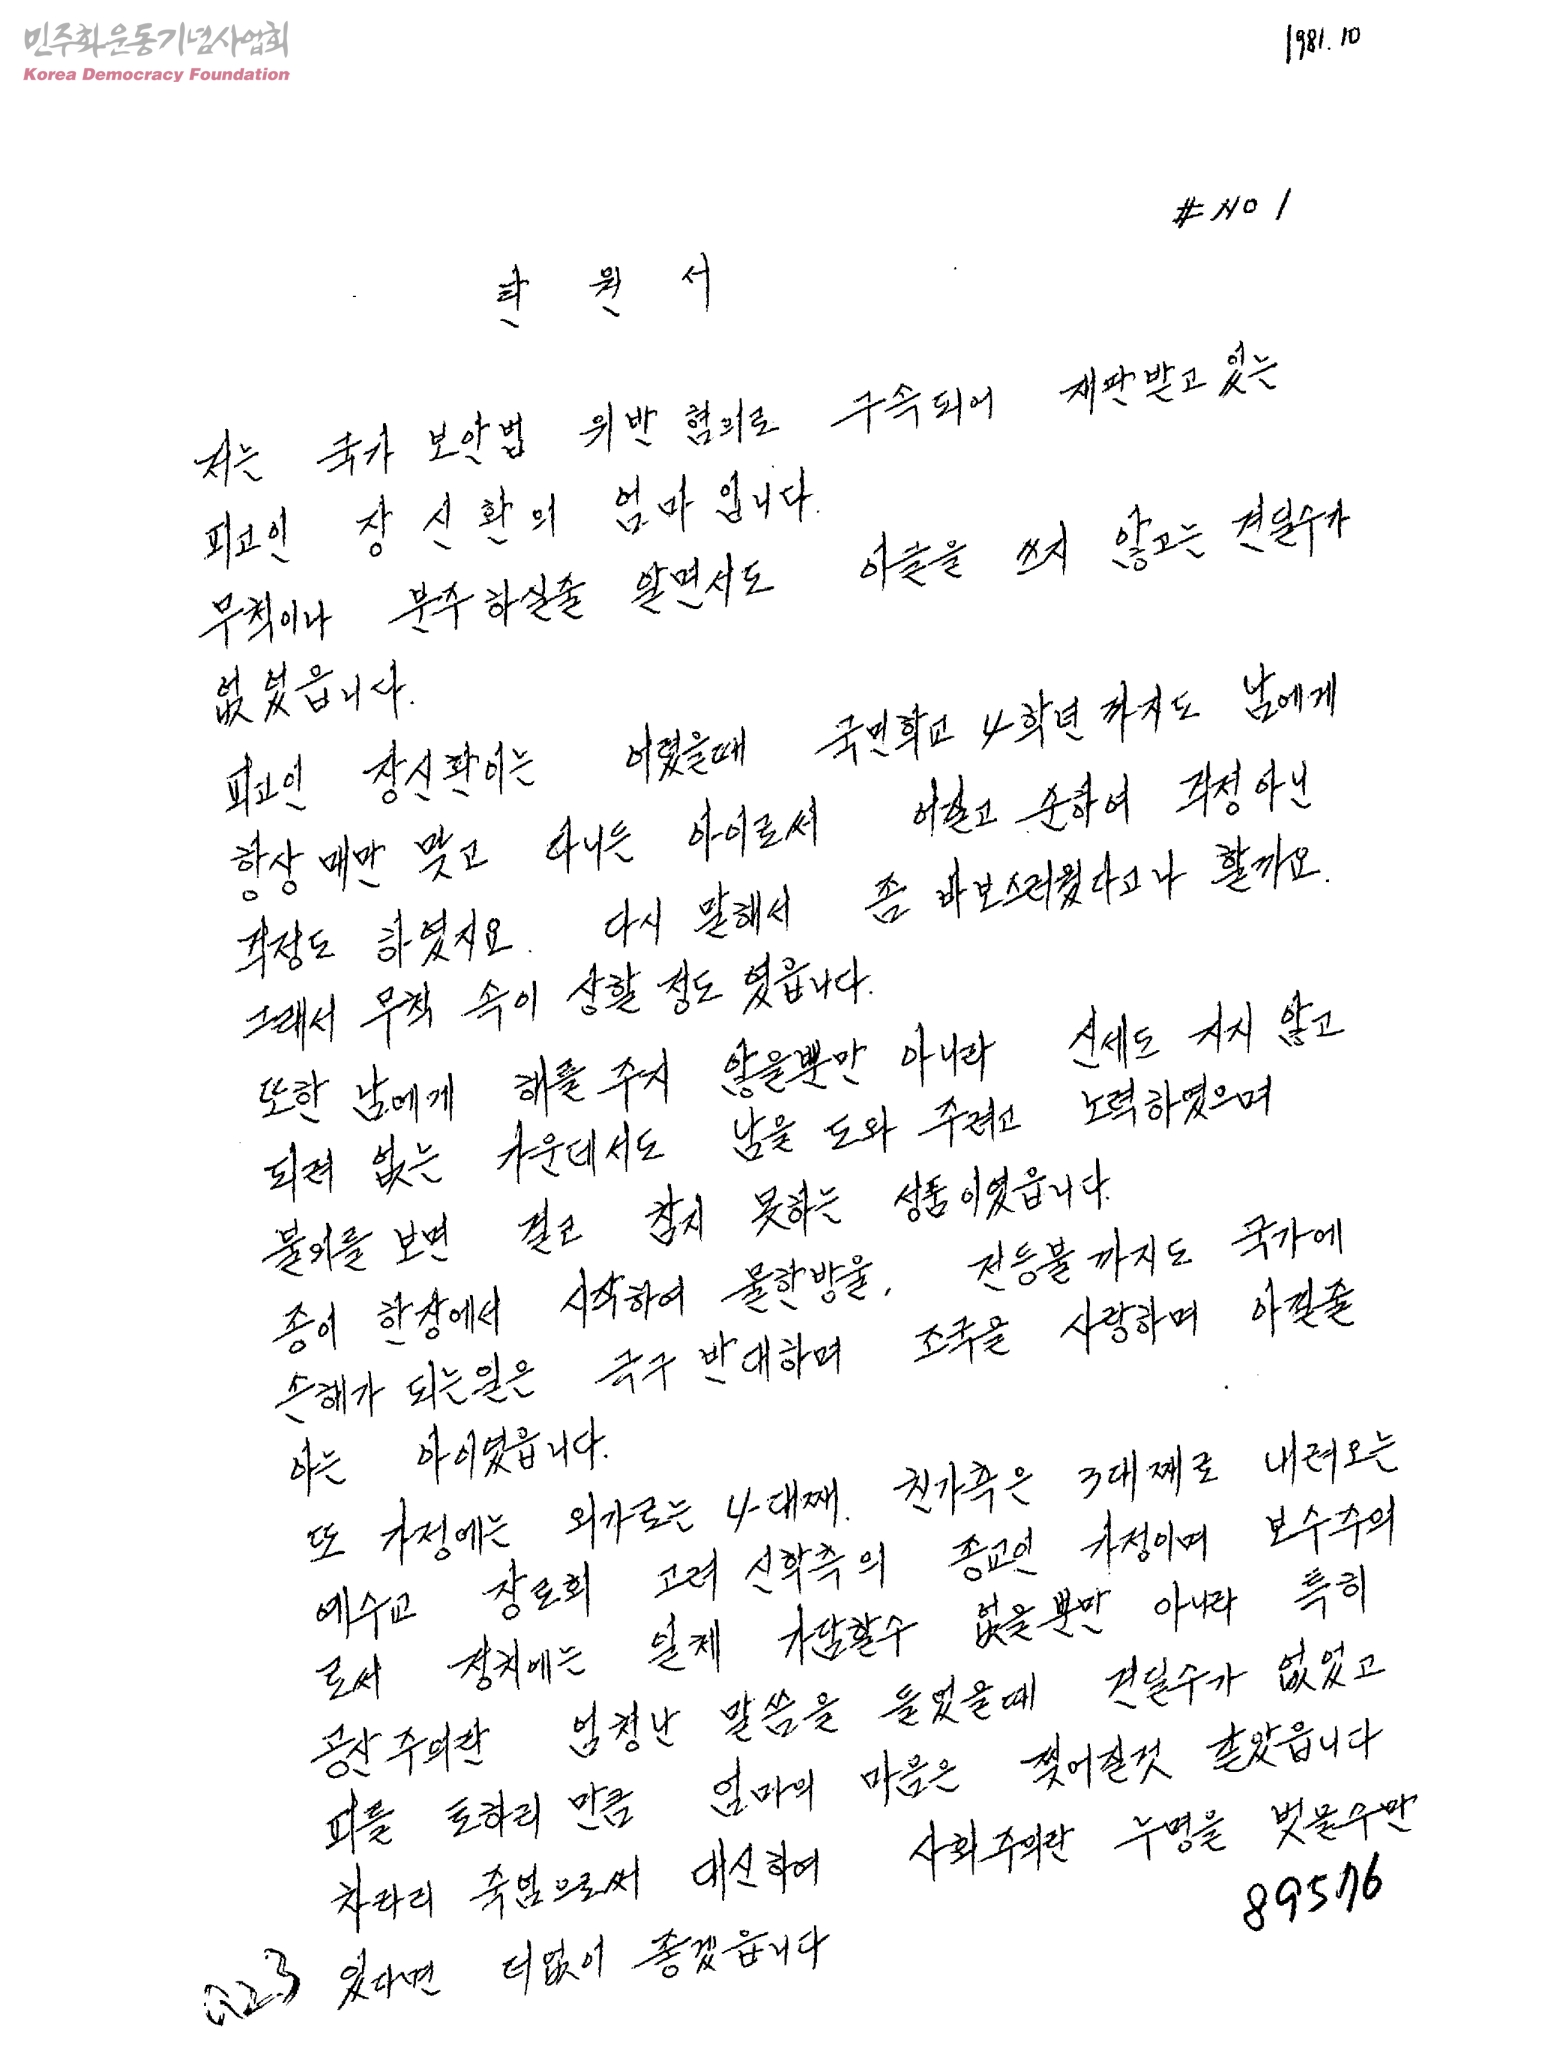 민주화운동기념사업회
Korea Democracy Foundation
1981.10
# NO 1
탄 원 서
저는 국가 보안법 위반 혐의로 구속되어 재판받고 있는
피고인 장 신 환의 엄마 입니다.
무척이나 분주하실줄 알면서도 이글을 쓰지 않고는 견딜수가
없었읍니다.
피고인 장신환이는 어렸을때 국민학교 4학년 까지도 남에게
항상 매만 맞고 다니든 아이로써 어질고 순하여 걱정아닌
걱정도 하였지요. 다시 말해서 좀 바보스러웠다고나 할까요.
그래서 무척 속이 상할 정도 였읍니다.
또한 남에게 해를 주지 않을뿐만 아니라 신세도 지지 않고
되려 없는 가운데서도 남을 도와 주려고 노력하였으며
불의를 보면 결코 참지 못하는 성품이였읍니다.
종이 한장에서 시작하여 물한방울, 전등불 까지도 국가에
손해가 되는일은 극구 반대하며 조국을 사랑하며 아낄줄
아는 아이였읍니다.
또 가정에는 외가로는 4대째. 친가측은 3대째로 내려오는
예수교 장로회 고려 신학측의 종교인 가정이며 보수주의
로써 정치에는 일체 가담할수 없을뿐만 아니라 특히
공산주의란 엄청난 말씀을 들었을때 견딜수가 없었고
피를 토하리 만큼 엄마의 마음은 찢어질것 같았읍니다
차라리 죽엄으로써 대신하여 사회주의란 누명을 벗을수만
있다면 더없이 좋겠읍니다
89576